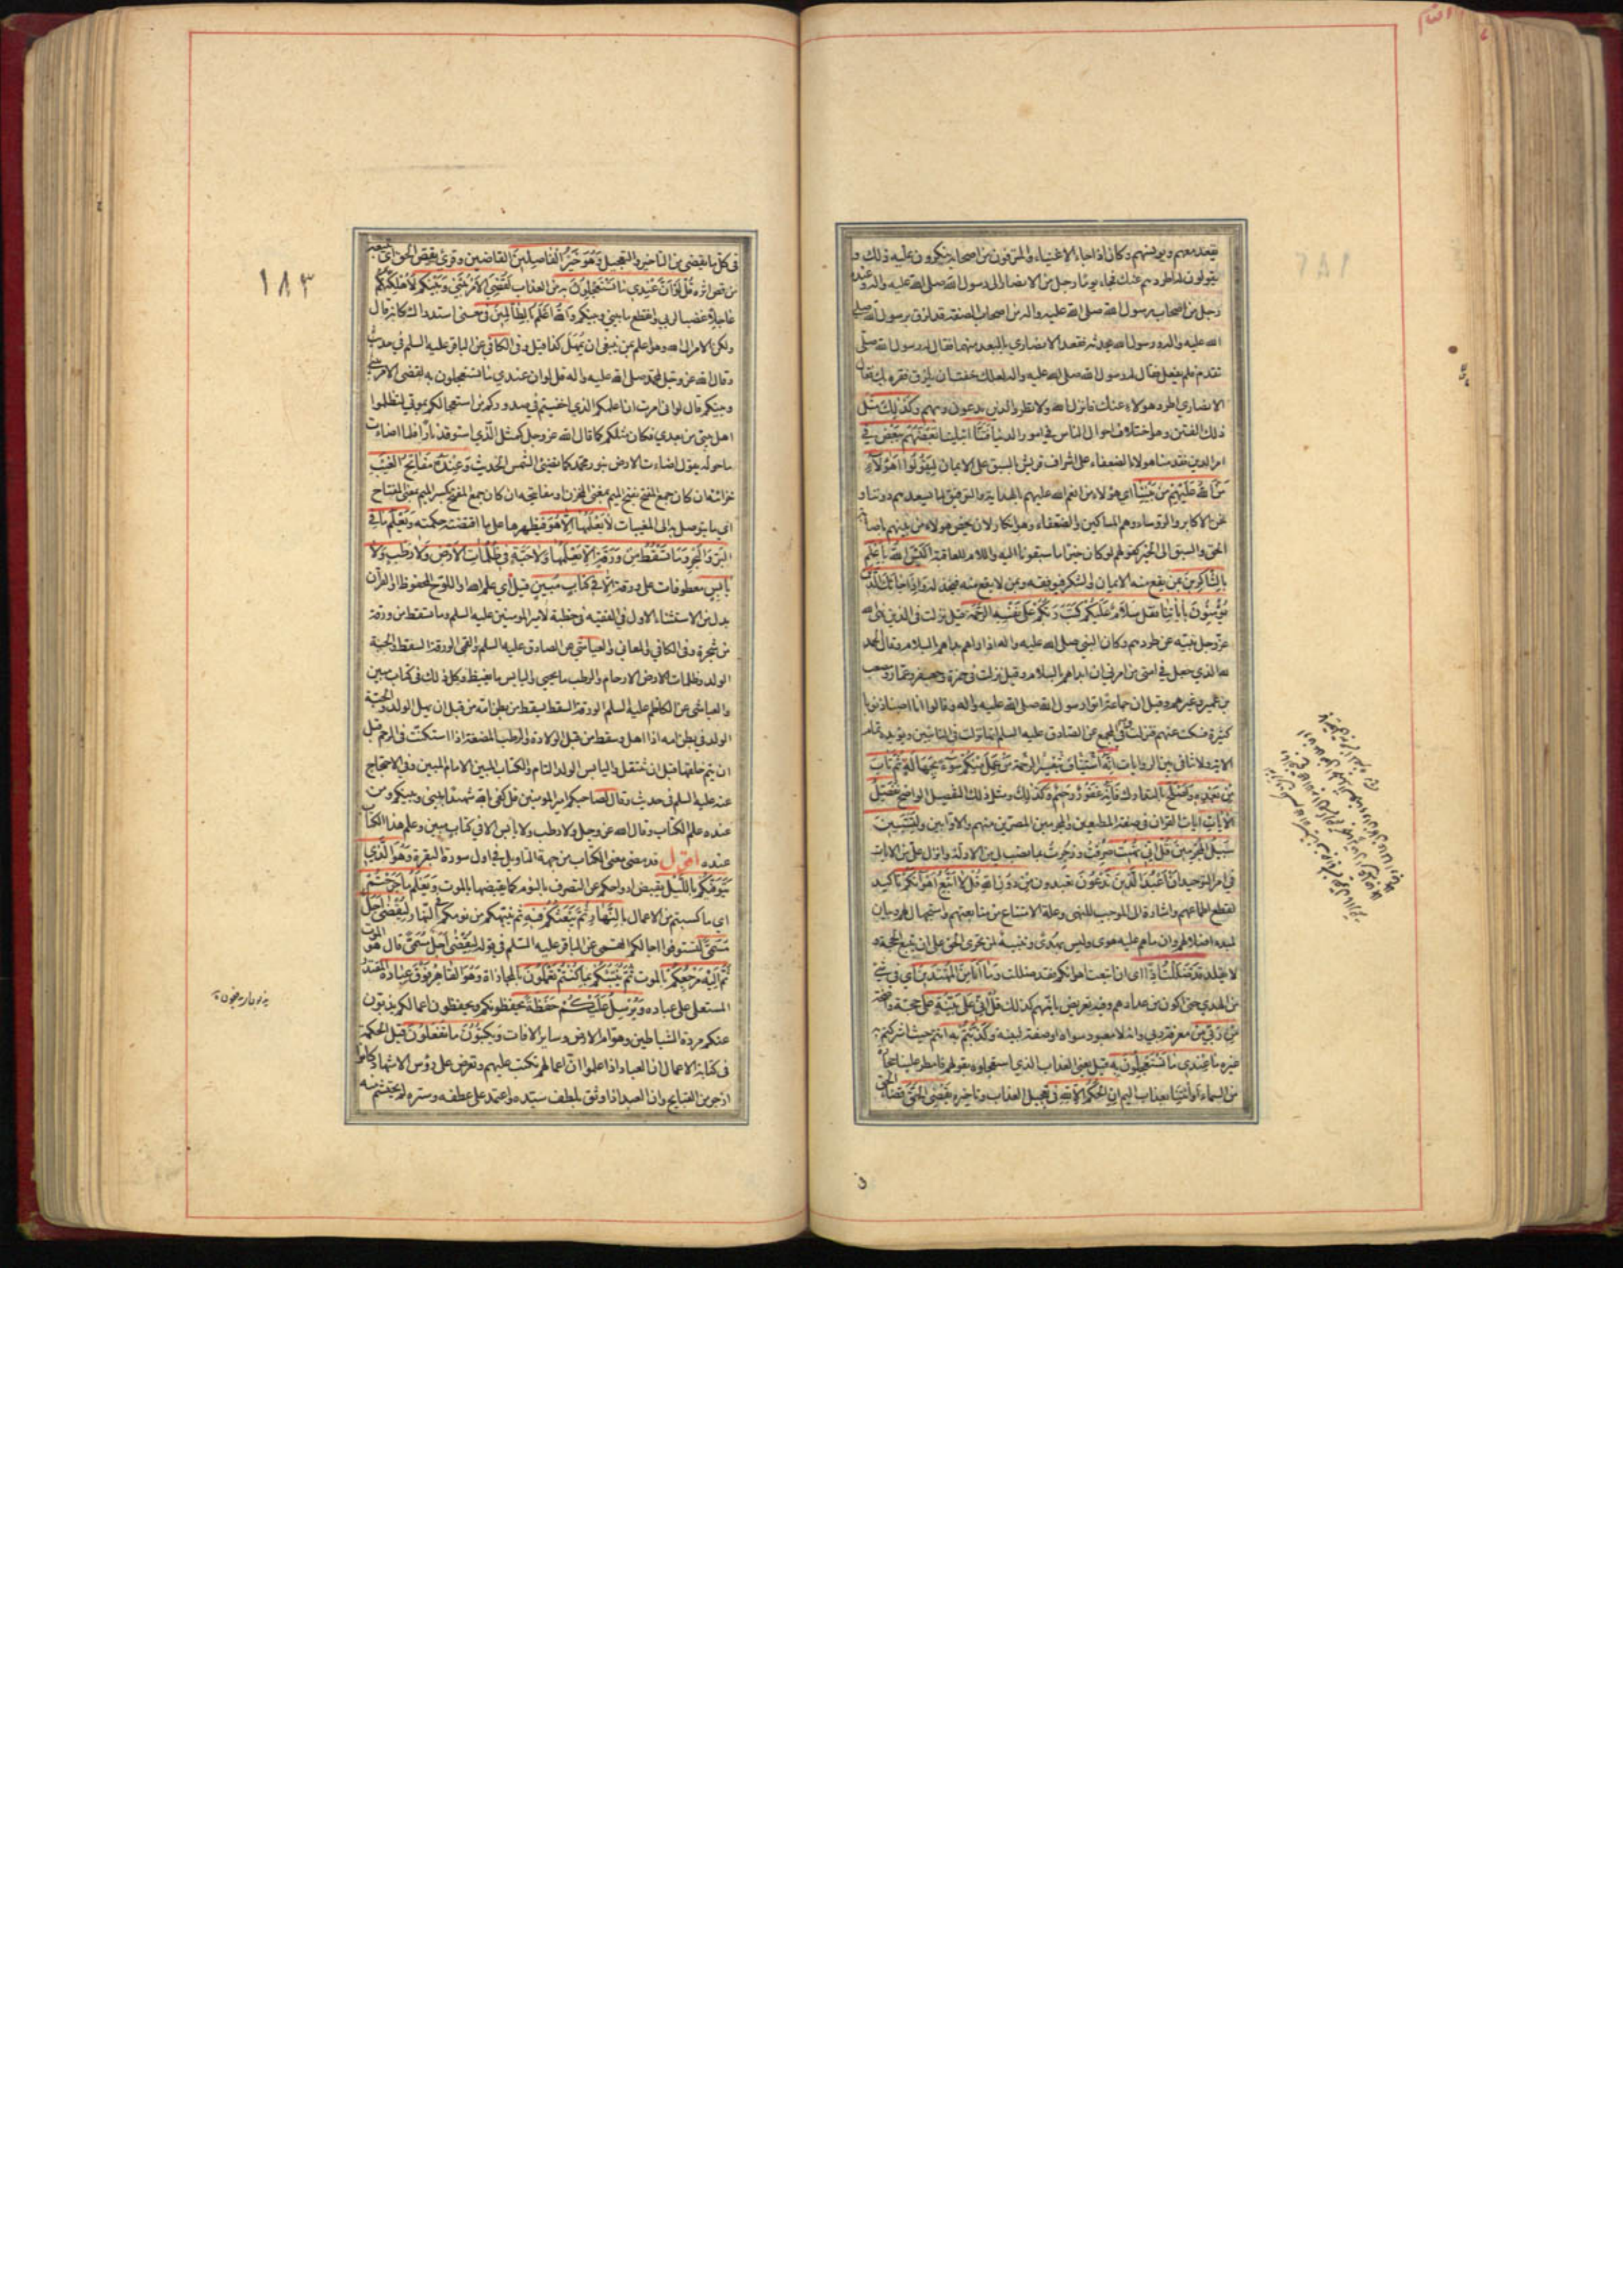 يقعد معهم ويدنيهم وكان اذا جاء الاغنياء والمترفون من اصحابه ينكرون عليه ذلك و
يقولون له اطردهم عنك فجاء يوما رجل من الانصار الى رسول الله صلى الله عليه واله وعنده
رجل من اصحاب رسول الله صلى الله عليه واله من اصحاب الصفة قد لزق برسول الله صلى
الله عليه واله ورسول الله يحدثه فقعد الانصاري بالبعد منهما فقال له رسول الله صلى
تقدم فلم يفعل فقال له رسول الله صلى الله عليه واله لعلك خفت ان يلزق فقره بك فقال
الانصاري اطرد هولاء عنك فانزل الله ولا تطرد الذين يدعون ربهم وكذلك مثل
ذلك الفتن وهو اختلاف احوال الناس في امور الدنيا فتنا ابتلينا بعضهم ببعض في
امر الدين فقدمنا هولاء الضعفاء على اشراف قريش بالسبق على الايمان ليقولوا اهولاء
من الله عليهم من بيننا اي هولاء من انعم الله عليهم بالهداية والتوفيق لما يسعدهم دوننا و
نحن الاكابر والرؤساء وهم المساكين والضعفاء وهو انكار لان يخص هولاء من بينهم باصابة
الحق والسبق الى الخير كقولهم لو كان خيرا ما سبقونا اليه واللام للعاقبة اليس الله باعلم
بالشاكرين بمن يقع منه الايمان والشكر فيوفقه وبمن لا يقع منه فيخذله واذا جاءك الذين
يؤمنون باياتنا فقل سلام عليكم كتب ربكم على نفسه الرحمة قيل نزلت في الذين نهى الله
عز وجل نبيه عن طردهم وكان النبي صلى الله عليه واله اذا راهم بداهم بالسلام وقال الحمد
لله الذي جعل في امتي من امرني ان ابداهم بالسلام وقيل نزلت في حمزة وجعفر وعمار ومصعب
بن عمير وغيرهم وقيل ان جماعة اتوا رسول الله صلى الله عليه واله وقالوا انا اصبنا ذنوبا
كثيرة فسكت عنهم فنزلت وفي المجمع عن الصادق عليه السلم انها نزلت في التائبين ويؤيده تمام
الاية ولا تنافي بين الروايات انه استيناف بتفسير الرحمة من عمل منكم سوءا بجهالة ثم تاب
من بعده واصلح بالتدارك فانه غفور رحيم وكذلك ومثل ذلك التفصيل الواضح نفصل
الايات ايات القران في صفة المطيعين والمجرمين المصرين منهم والاوابين ولتستبين
سبيل المجرمين قل اني نهيت صرفت وزجرت بما نصب لي من الادلة وانزل علي من الايات
في امر التوحيد ان اعبد الذين تدعون تعبدون من دون الله قل لا اتبع اهواءكم تاكيد
لقطع اطماعهم واشارة الى الموجب للنهي وعلة الامتناع من متابعتهم واستجهال لهم وبيان
لمبدء اضلالهم وان ما هم عليه هوى وليس بهدى وتنبيه لمن تحرى الحق على ان يتبع الحجة و
لا يقلد قد ضللت اذا اي ان اتبعت اهواءكم فقد ضللت وما انا من المهتدين اي في شئ
من الهدى حتى اكون من عدادهم وفيه تعريض بانهم كذلك قل اني على بينة على حجة واضحة
من ربي من معرفة ربي وانه لا معبود سواه او صفة لبينة وكذبتم به انتم حيث اشركتم به
غيره ما عندي ما تستعجلون به قيل يعني العذاب الذي استعجلوه بقولهم فامطر علينا حجارة
من السماء او ائتنا بعذاب اليم ان الحكم الا لله في تعجيل العذاب وتاخيره يقضي الحق قضاء الحق
١٨٣
في كل ما يقضي من التاخير والتعجيل وهو خير الفاصلين القاضين وقرئ يقص الحق اي يتبعه
من قص اثره قل لو ان عندي ما تستعجلون به من العذاب لقضي الامر بيني وبينكم لاهلكتكم
عاجلا غضبا لربي وانقطع ما بيني وبينكم والله اعلم بالظالمين في معنى استدراك كانه قال
ولكن الامر الى الله وهو اعلم بمن ينبغي ان يمهل كذا قيل وفي الكافي عن الباقر عليه السلم في حديث
وقال الله عز وجل لمحمد صلى الله عليه واله قل لو ان عندي ما تستعجلون به لقضي الامر بيني
وبينكم قال لو اني امرت ان اعلمكم الذي اخفيتم في صدوركم من استعجالكم بموتي لتظلموا
اهل بيتي من بعدي فكان مثلكم كما قال الله عز وجل كمثل الذي استوقد نارا فلما اضاءت
ما حوله يقول اضاءت الارض بنور محمد كما تضئ الشمس الحديث وعنده مفاتح الغيب
خزائنه ان كان جمع المفتح بفتح الميم بمعنى المخزن او مفاتيحه ان كان جمع المفتح بكسر الميم بمعنى المفتاح
اي ما يتوصل به الى المغيبات لا يعلمها الا هو فيظهرها على ما اقتضته حكمته ويعلم ما في
البر والبحر وما تسقط من ورقة الا يعلمها ولا حبة في ظلمات الارض ولا رطب ولا
يابس معطوفات على ورقة الا في كتاب مبين قيل اي علم الله او اللوح المحفوظ او القران
بدل من الاستثناء الاول في الفقيه في خطبة لامير المومنين عليه السلم وما تسقط من ورقة
من شجرة وفي الكافي والمعاني والعياشي عن الصادق عليه السلم والقمي الورقة السقط والحبة
الولد وظلمات الارض الارحام والرطب ما يحيى واليابس ما يغيض وكل ذلك في كتاب مبين
والعياشي عن الكاظم عليه السلم الورقة السقط يسقط من بطن امه من قبل ان يهل الولد والحبة
الولد في بطن امه اذا اهل وسقط من قبل الولادة والرطب المضغة اذا استكنت في الرحم قبل
ان يتم خلقها قبل ان تنتقل واليابس الولد التام والكتاب المبين الامام المبين وفي الاحتجاج
عنه عليه السلم في حديث وقال لصاحبكم امير المومنين قل كفى بالله شهيدا بيني وبينكم ومن
عنده علم الكتاب وقال الله عز وجل ولا رطب ولا يابس الا في كتاب مبين وعلم هذا الكتاب
عنده اقول قد مضى معنى الكتاب من جهة التاويل في اول سورة البقرة وهو الذي
يتوفيكم بالليل يقبض ارواحكم عن التصرف بالنوم كما يقبضها بالموت ويعلم ما جرحتم
اي ما كسبتم من الاعمال بالنهار ثم يبعثكم فيه ثم ينبهكم من نومكم في النهار ليقضى اجل
مسمى لتستوفوا اجالكم القمي عن الباقر عليه السلم في قوله ليقضى اجل مسمى قال هو الموت
ثم اليه مرجعكم بالموت ثم ينبئكم بما كنتم تعملون بالمجازاة وهو القاهر فوق عباده المقتدر
المستعلي على عباده ويرسل عليكم حفظة يحفظونكم ويحفظون اعمالكم يذبون
عنكم مردة الشياطين وهوام الارض وساير الافات ويكتبون ما تفعلون قيل الحكمة
في كتابة الاعمال ان العباد اذا علموا ان اعمالهم تكتب عليهم وتعرض على رؤس الاشهاد كانوا
ازجر من القبايح وان العبد اذا وثق بلطف سيده واعتمد على عطفه وستره لم يحتشم منه